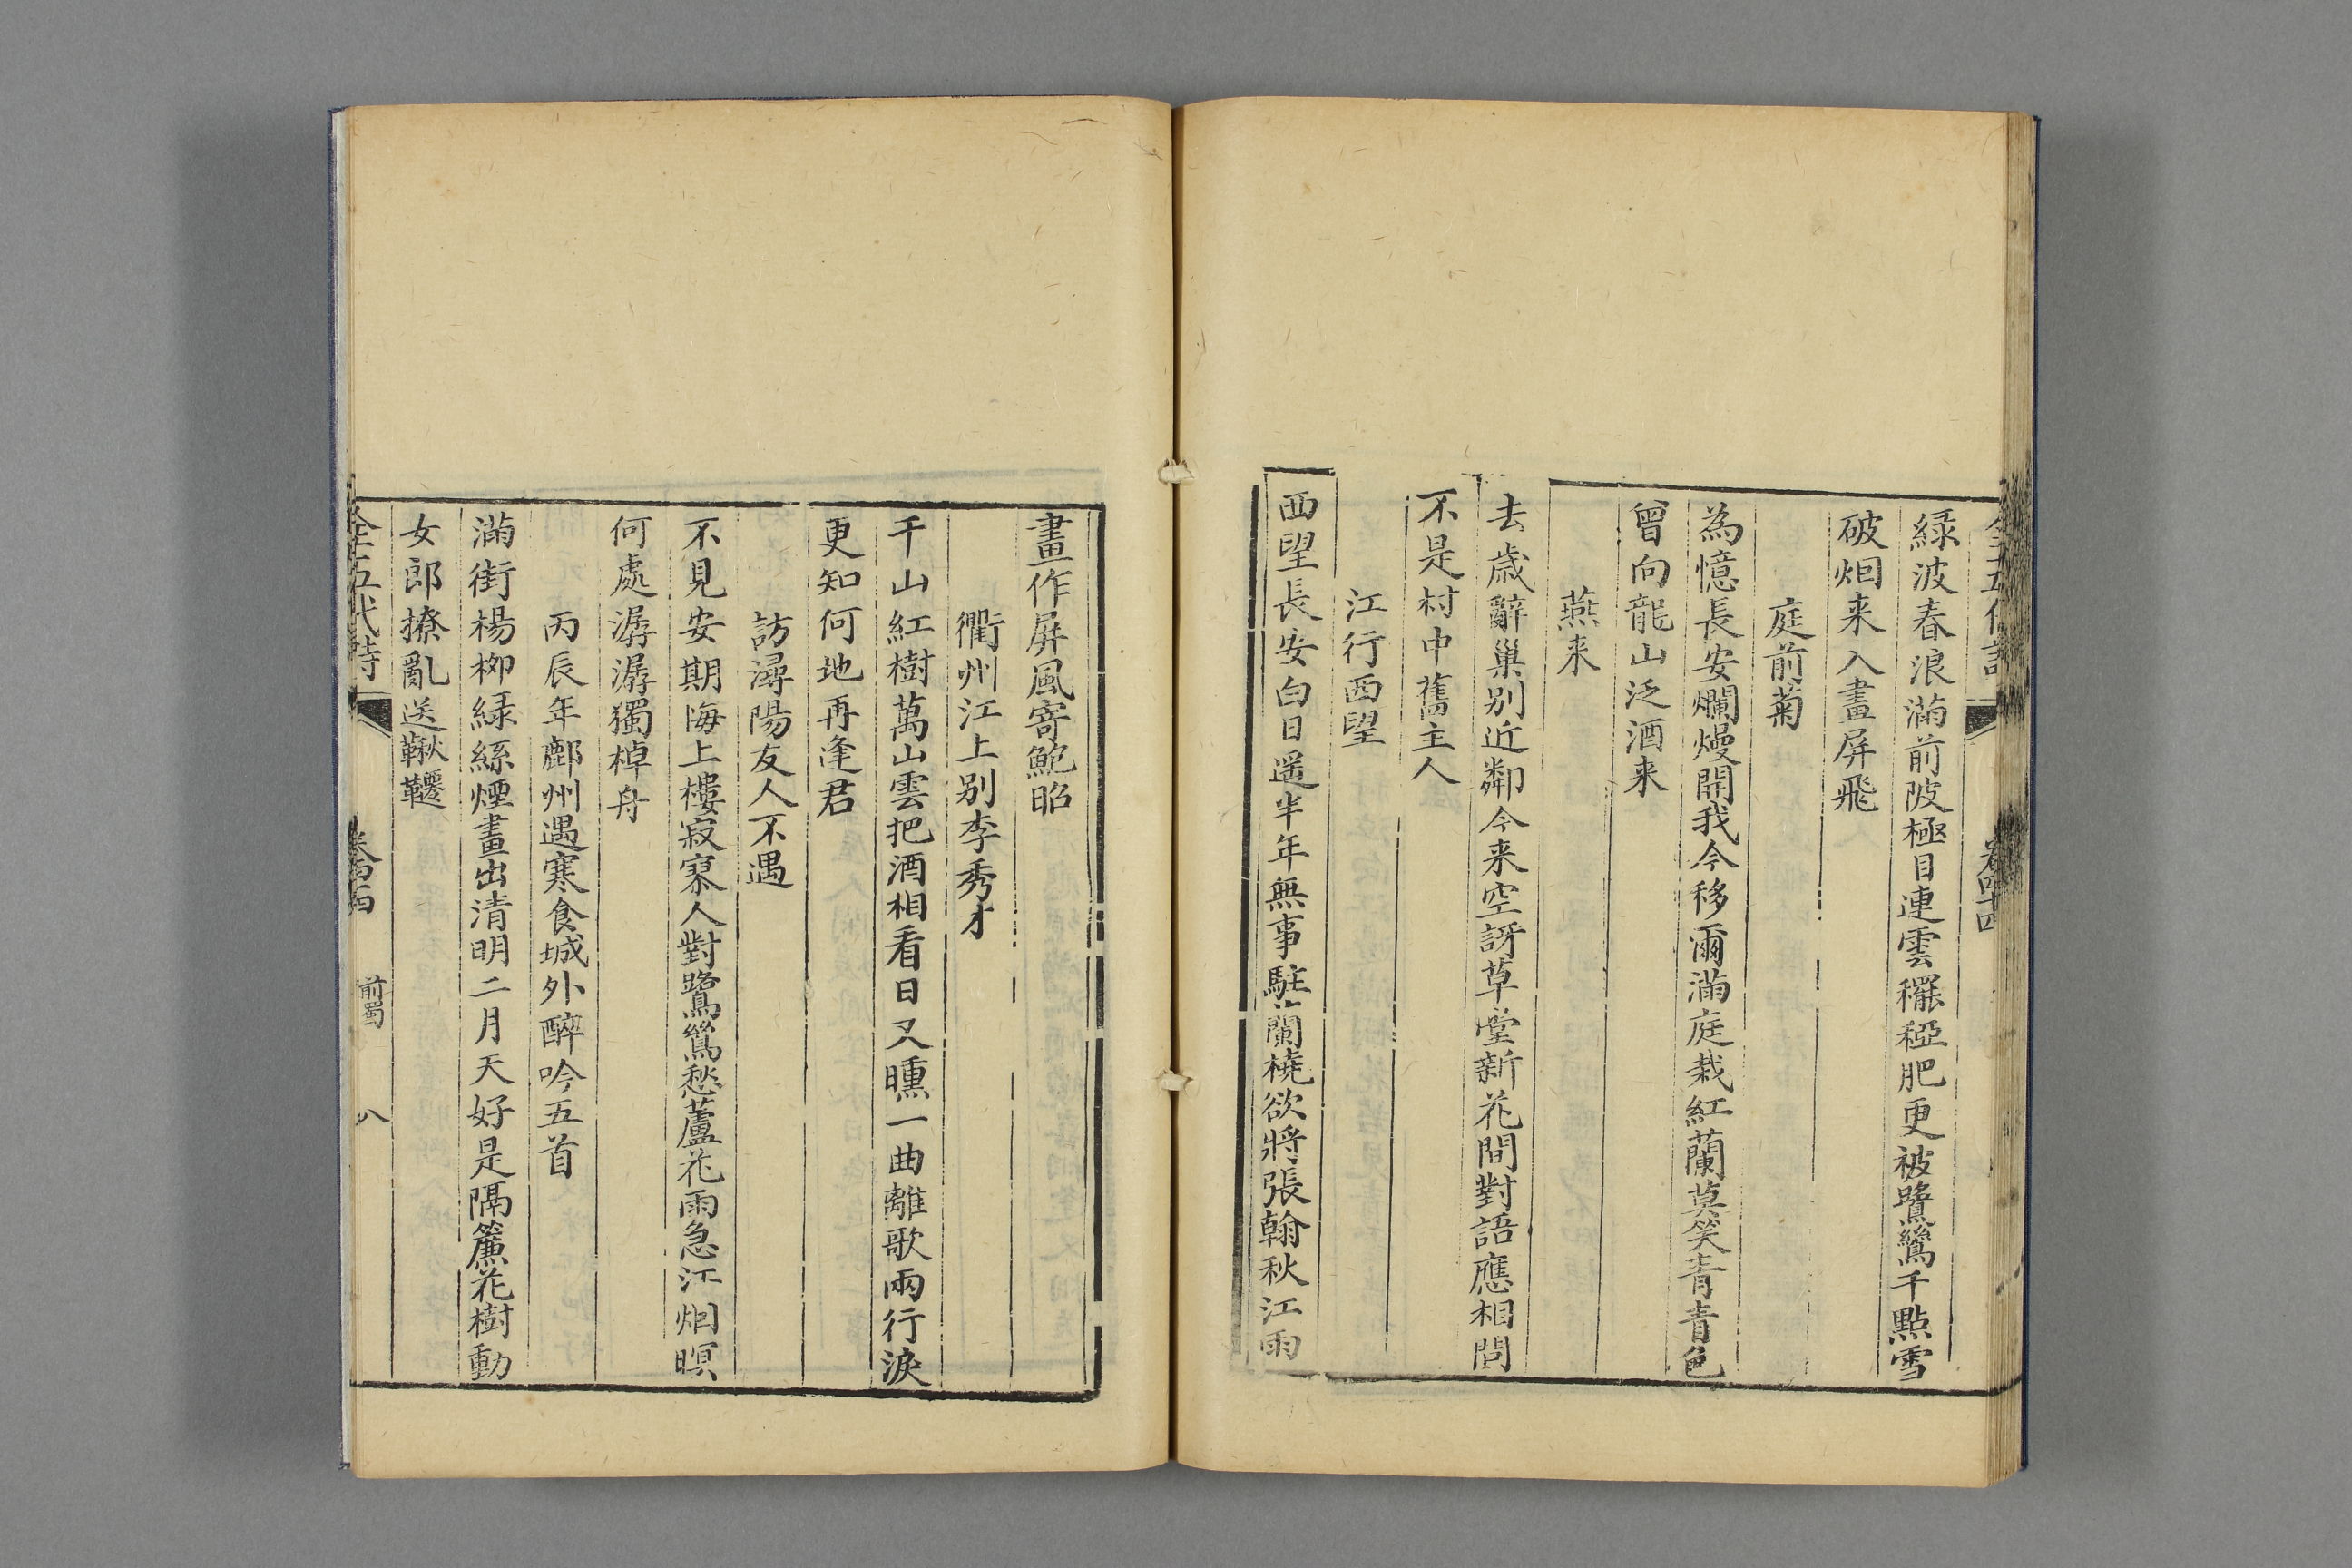 全五代詩
卷四十四
綠波春浪滿前陂極目連雲䆉稏肥更被鷺鷥千點雪
破烟来入畫屏飛
庭前菊
為憶長安爛熳開我今移爾滿庭栽紅蘭莫笑青青色
曾向龍山泛酒来
燕来
去歲辭巢别近鄰今来空訝草堂新花間對語應相問
不是村中舊主人
江行西望
西望長安白日遥半年無事駐蘭橈欲將張翰秋江雨
畫作屏風寄鮑昭
衢州江上别李秀才
千山紅樹萬山雲把酒相看日又曛一曲離歌兩行淚
更知何地再逢君
訪潯陽友人不遇
不見安期悔上樓寂寞人對鷺鷥愁蘆花雨急江烟暝
何處潺潺獨棹舟
丙辰年鄜州遇寒食城外醉吟五首
滿街楊柳綠絲煙畫出清明二月天好是隔簾花樹動
女郎撩亂送鞦韆
全五代詩
前蜀
八